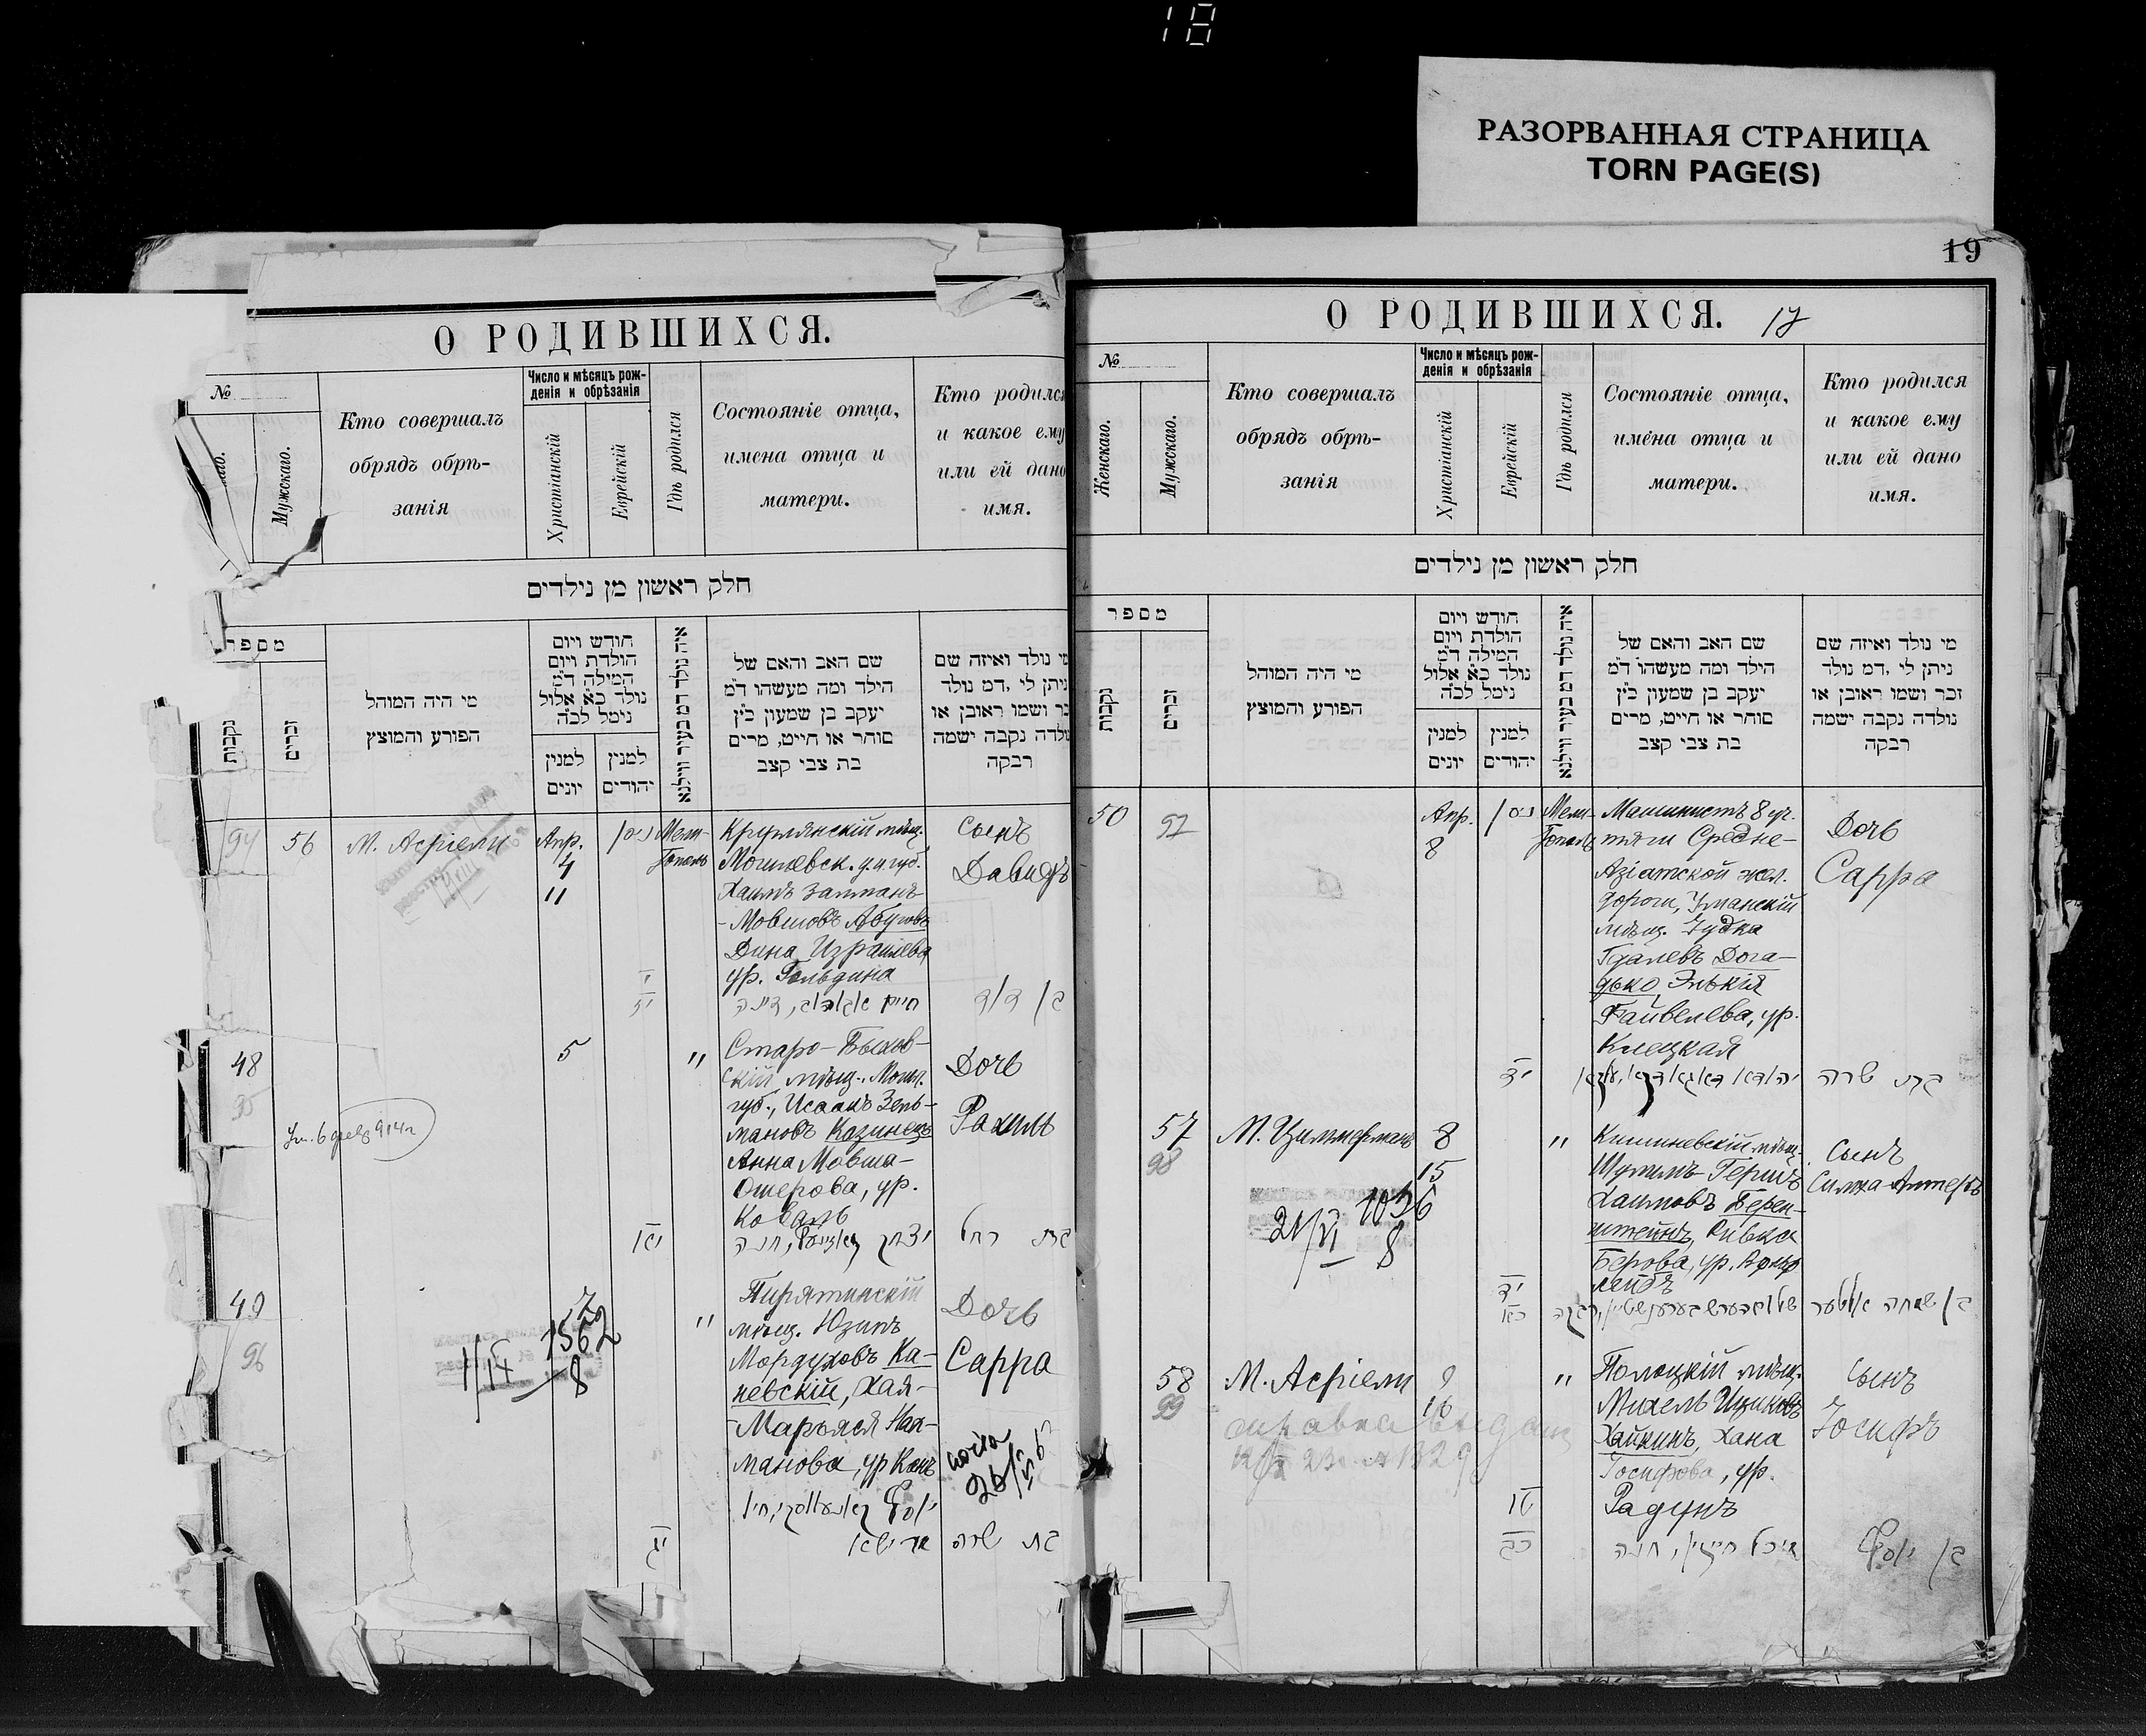 18
РАЗОРВАННАЯ СТРАНИЦА
TORN PAGE(S)
О РОДИВШИХСЯ.
№
Мужскаго.
Кто совершалъ
обрядъ обрѣ-
занія
Число и мѣсяцъ рож-
денія и обрѣзанія
Христіанскій
Еврейскій
Гдѣ родился
Состояніе отца,
имена отца и
матери.
Кто родился
и какое ему
или ей дано
имя.
חלק ראשון מן נילדים
מספר
נקבות
זכרים
מי היה המוהל
הפורע והמוצץ
חודש ויום
הולדת ויום
המילה ד״מ
נולד כ״א אלול
נימל לכ״ה
למנין
יונים
למנין
יהודים
איה נולד דמ בעיר ווילנא
שם האב והאם של
הילד ומה מעשהו ד״מ
יעקב בן שמעון כ״ץ
סוחר או חייט, מרים
בת צבי קצב
מי נולד ואיזה שם
ניתן לי .דמ נולד
זכר ושמו ראובן או
נולדה נקבה ישמה
רבקה
94 56 М. Асріели Апр. ניסן Мели- Круглянскій мѣщ. сынъ
4 тополь Могилевск. у. и губ. Давидъ
11 Хаимъ Залманъ
-Мовшовъ Абуговъ
Дина Израилева
ур. Гольдина
י
יז
דינה
בן דוד
48 5 " Старо-Быхов- Дочь
скій мѣщ., Могил.
95 губ., Исаакъ Зель-
мановъ Казинецъ Рахиль
Анна Мовша-
Ошерова, ур.
Коваль
יא יצחק חנה בת רחל
49 7 " Пирятинскій Дочь
мѣщ. Юзипъ
96 1562 Мордуховъ Ка- Сарра
8 невскій, Хая-
Марьяся Нах-
манова, ур Канъ
копія
יוסף
יג בת שרה
19
О РОДИВШИХСЯ. 17
№
Женскаго.
Мужскаго.
Кто совершалъ
обрядъ обрѣ-
занія
Число и мѣсяцъ рож-
денія и обрѣзанія
Христіанскій
Еврейскій
Гдѣ родился
Состояніе отца,
имена отца и
матери.
Кто родился
и какое ему
или ей дано
имя.
חלק ראשון מן נילדים
מספר
נקבות
זכרים
מי היה המוהל
הפורע והמוצץ
חודש ויום
הולדת ויום
המילה ד״מ
נולד כ״א אלול
נימל לכ״ה
למנין
יונים
למנין
יהודים
איה נולד דמ בעיר ווילנא
שם האב והאם של
הילד ומה מעשהו ד״מ
יעקב בן שמעון כ״ץ
סוחר או חייט, מרים
בת צבי קצב
מי נולד ואיזה שם
ניתן לי .דמ נולד
זכר ושמו ראובן או
נולדה נקבה ישמה
רבקה
50 97 Апр. ניסן Мели- Машинистъ 8 уч. Дочь
8 тополь тяги Средне-
Азіатской жел. Сарра
дороги, Уманскій
мѣщ. Іудка
Гдалевъ Дога-
дько, Энькія
Файвелева, ур.
Клецкая
יד בת שרה
57 М. Циммерманъ 8 " Кишиневскій мѣщ. Сынъ
98 15 Шулимъ-Гершъ Симха-Алтеръ
1056 Хаимовъ Берен-
21/VI 8 штейнъ, Ривка
Берова, ур.
יד
כא בן שמחה אלטער
58 М. Асріели 9 " Полоцкій мѣщ. Сынъ
99 16 Михель Ицковъ Іосифъ
справка выдана Хайкинъ, Хана
Іосифова, ур.
טו Радунъ
כג מיכל חייקין, חנה בן יוסף